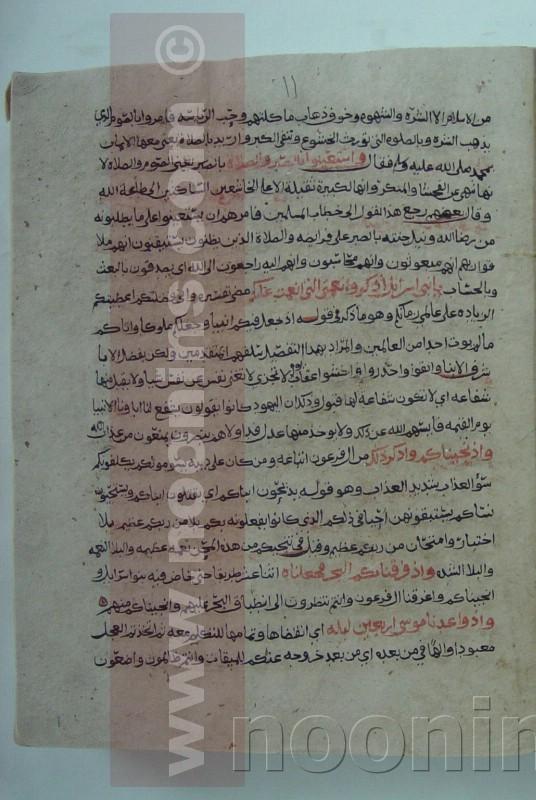 ١١
من الاسلام الا الشره والشهوه وخوف ذهاب ماكلتهم وحب الرياسه فامروا بالصوم الذي
يذهب الشره وبالصلوه التي تورث الخشوع وتنفى الكبر واريد بالصلاة التي معها الايمان
بمحمد صلى الله عليه وسلم فقال واستعينوا بالصبر والصلاة بالصبر يعني الصوم والصلاة لا
نها تنهى عن الفحشا والمنكر وانها لكبيرة لثقيلة الا على الخاشعين الساكنين الى طاعة الله
وقال بعضهم رجع هذا القول الى خطاب المسلمين فامرهم ان يستعينوا على ما يطلبونه
من رضا الله ونيل جنته بالصبر على فرايضه والصلاة الذين يظنون يستيقنون انهم ملا
قوا ربهم انهم مبعوثون وانهم محاسبون وانهم اليه راجعون الى الله اي يصدقون بالبعث
والحساب يا بني اسرائيل اذكروا نعمتي التي انعمت عليكم واني فضلتكم اعطيتكم
الزيادة على عالمي زمانكم وهو ما ذكر في قوله اذ جعل فيكم انبيا وجعلكم ملوكا واتاكم
مالم يوت احدا من العالمين والمراد بهذا التفضيل سلفهم المتقدمين ولكن بفضل الابا
شرف الابنا واتقوا واحذروا واخشوا عقاب يوم لا تجزى لا تغني نفس عن نفس شيا ولا يقبل منها
شفاعه اي لا تكون شفاعه لها قبول وذلك ان اليهود كانوا يقولون يشفع لنا اباونا الانبيا
يوم القيمه فايسهم الله عن ذلك ولا يوخذ منها عدل فدا ولا هم ينصرون يمنعون من عذاب الله
واذ نجيناكم واذكروا ذلك من ال فرعون اتباعه ومن كان على دينه يسومونكم يكلفونكم
سؤ العذاب شديد العذاب وهو قوله يذبحون ابناكم اي يقتلون ابناكم ويستحيون
نساكم يستبقونهن احيا في ذلكم الذي كانوا يفعلونه بكم بلا من ربكم عظيم بلا
اختبار وامتحان من ربكم عظيم وقيل في تنجيكم من هذه المحن نعمه عظيمه والبلا النعمه
والبلا الشده واذ فرقنا بكم البحر فجعلناه اثنا عشر طريقا حتى خاض فيه بنوا سرايل و
انجيناكم واغرقنا ال فرعون وانتم تنظرون الى انطباق البحر عليهم وانجيناكم منهم
واذ واعدنا موسى اربعين ليله اي انقضاها وتمامها للتكلم معه ثم اتخذتم العجل
معبودا والها من بعده اي من بعد خروجه عنكم للميقات وانتم ظالمون واضعون
www.noonins.com ©
noonin